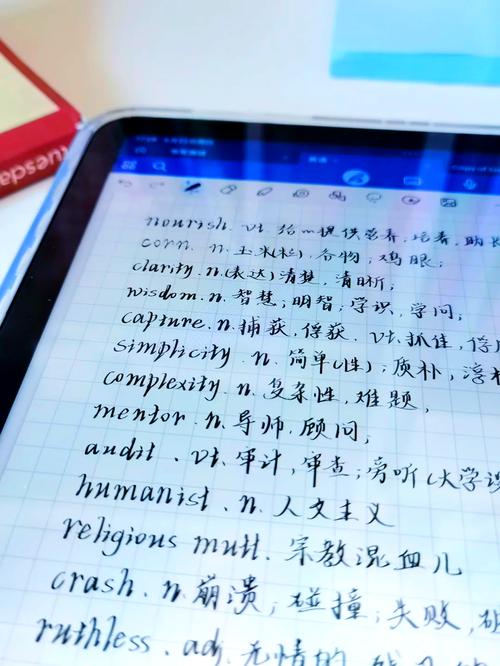 Tuesday
nourish. vt. 给…提供营养. 培养. 助长
corn. n. 玉米(粒), 谷物; 鸡眼;
clarity. n. (表达)清楚, 清晰;
wisdom. n. 智慧; 明智; 学识, 学问;
capture. n. 捕获, 俘获. vt. 抓住, 俘
simplicity. n. 简单(性); 质朴,
complexity. n. 复杂性, 难题,
mentor. n. 导师. 顾问;
audit. vt. 审计, 审查; 旁听(大学
humanist. n. 人文主义
religious mutt. 宗教混血儿
crash. n. 崩溃; 碰撞; 失败,
ruthless. adj. 无情的